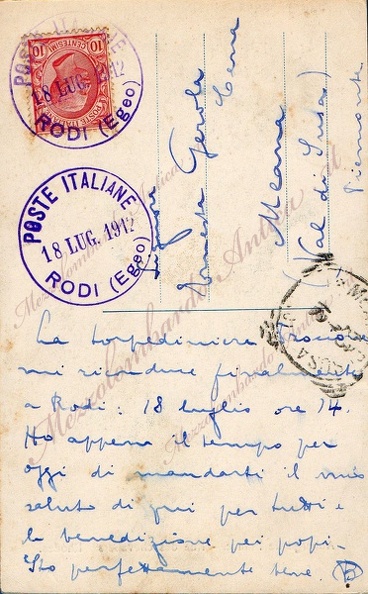 POSTE ITALIANE
18 LUG. 1912
RODI (Egeo)
10 CENTESIMI 10
POSTE ITALIANE
18 LUG. 1912
RODI (Egeo)
Gerola
Meana
(Val di Susa)
Piemonte
La torpediniera Procione
mi riconduce finalmente
a Rodi: 18 luglio ore 14.
Ho appena il tempo per
oggi di mandarti il mio
saluto di qui per tutti e
la benedizione pei popi.
Sto perfettamente bene.